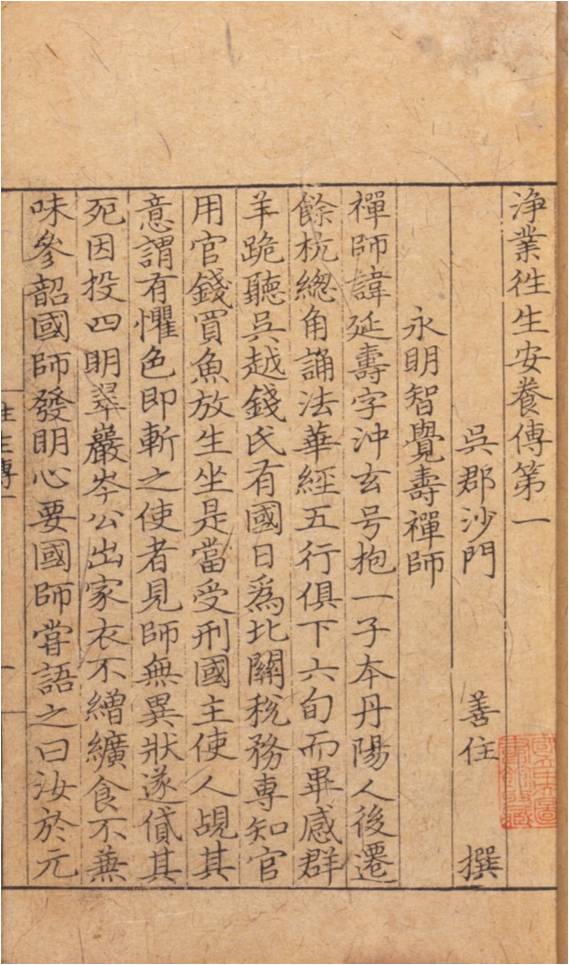 淨業徃生安養傳第一
吳郡沙門 善住 撰
永明智覺壽禪師
禪師諱延壽字沖玄号抱一子夲丹陽人後遷
餘杭緫角誦法華經五行俱下六旬而畢感群
羊跪聽吳越錢氏有國日爲北關稅務專知官
用官錢買魚放生坐是當受刑國主使人覘其
意謂有懼色即斬之使者見師無異狀遂貸其
死因投四明翠巖岑公出家衣不繒纊食不蕪
味參韶國師發明心要國師甞語之曰汝於元